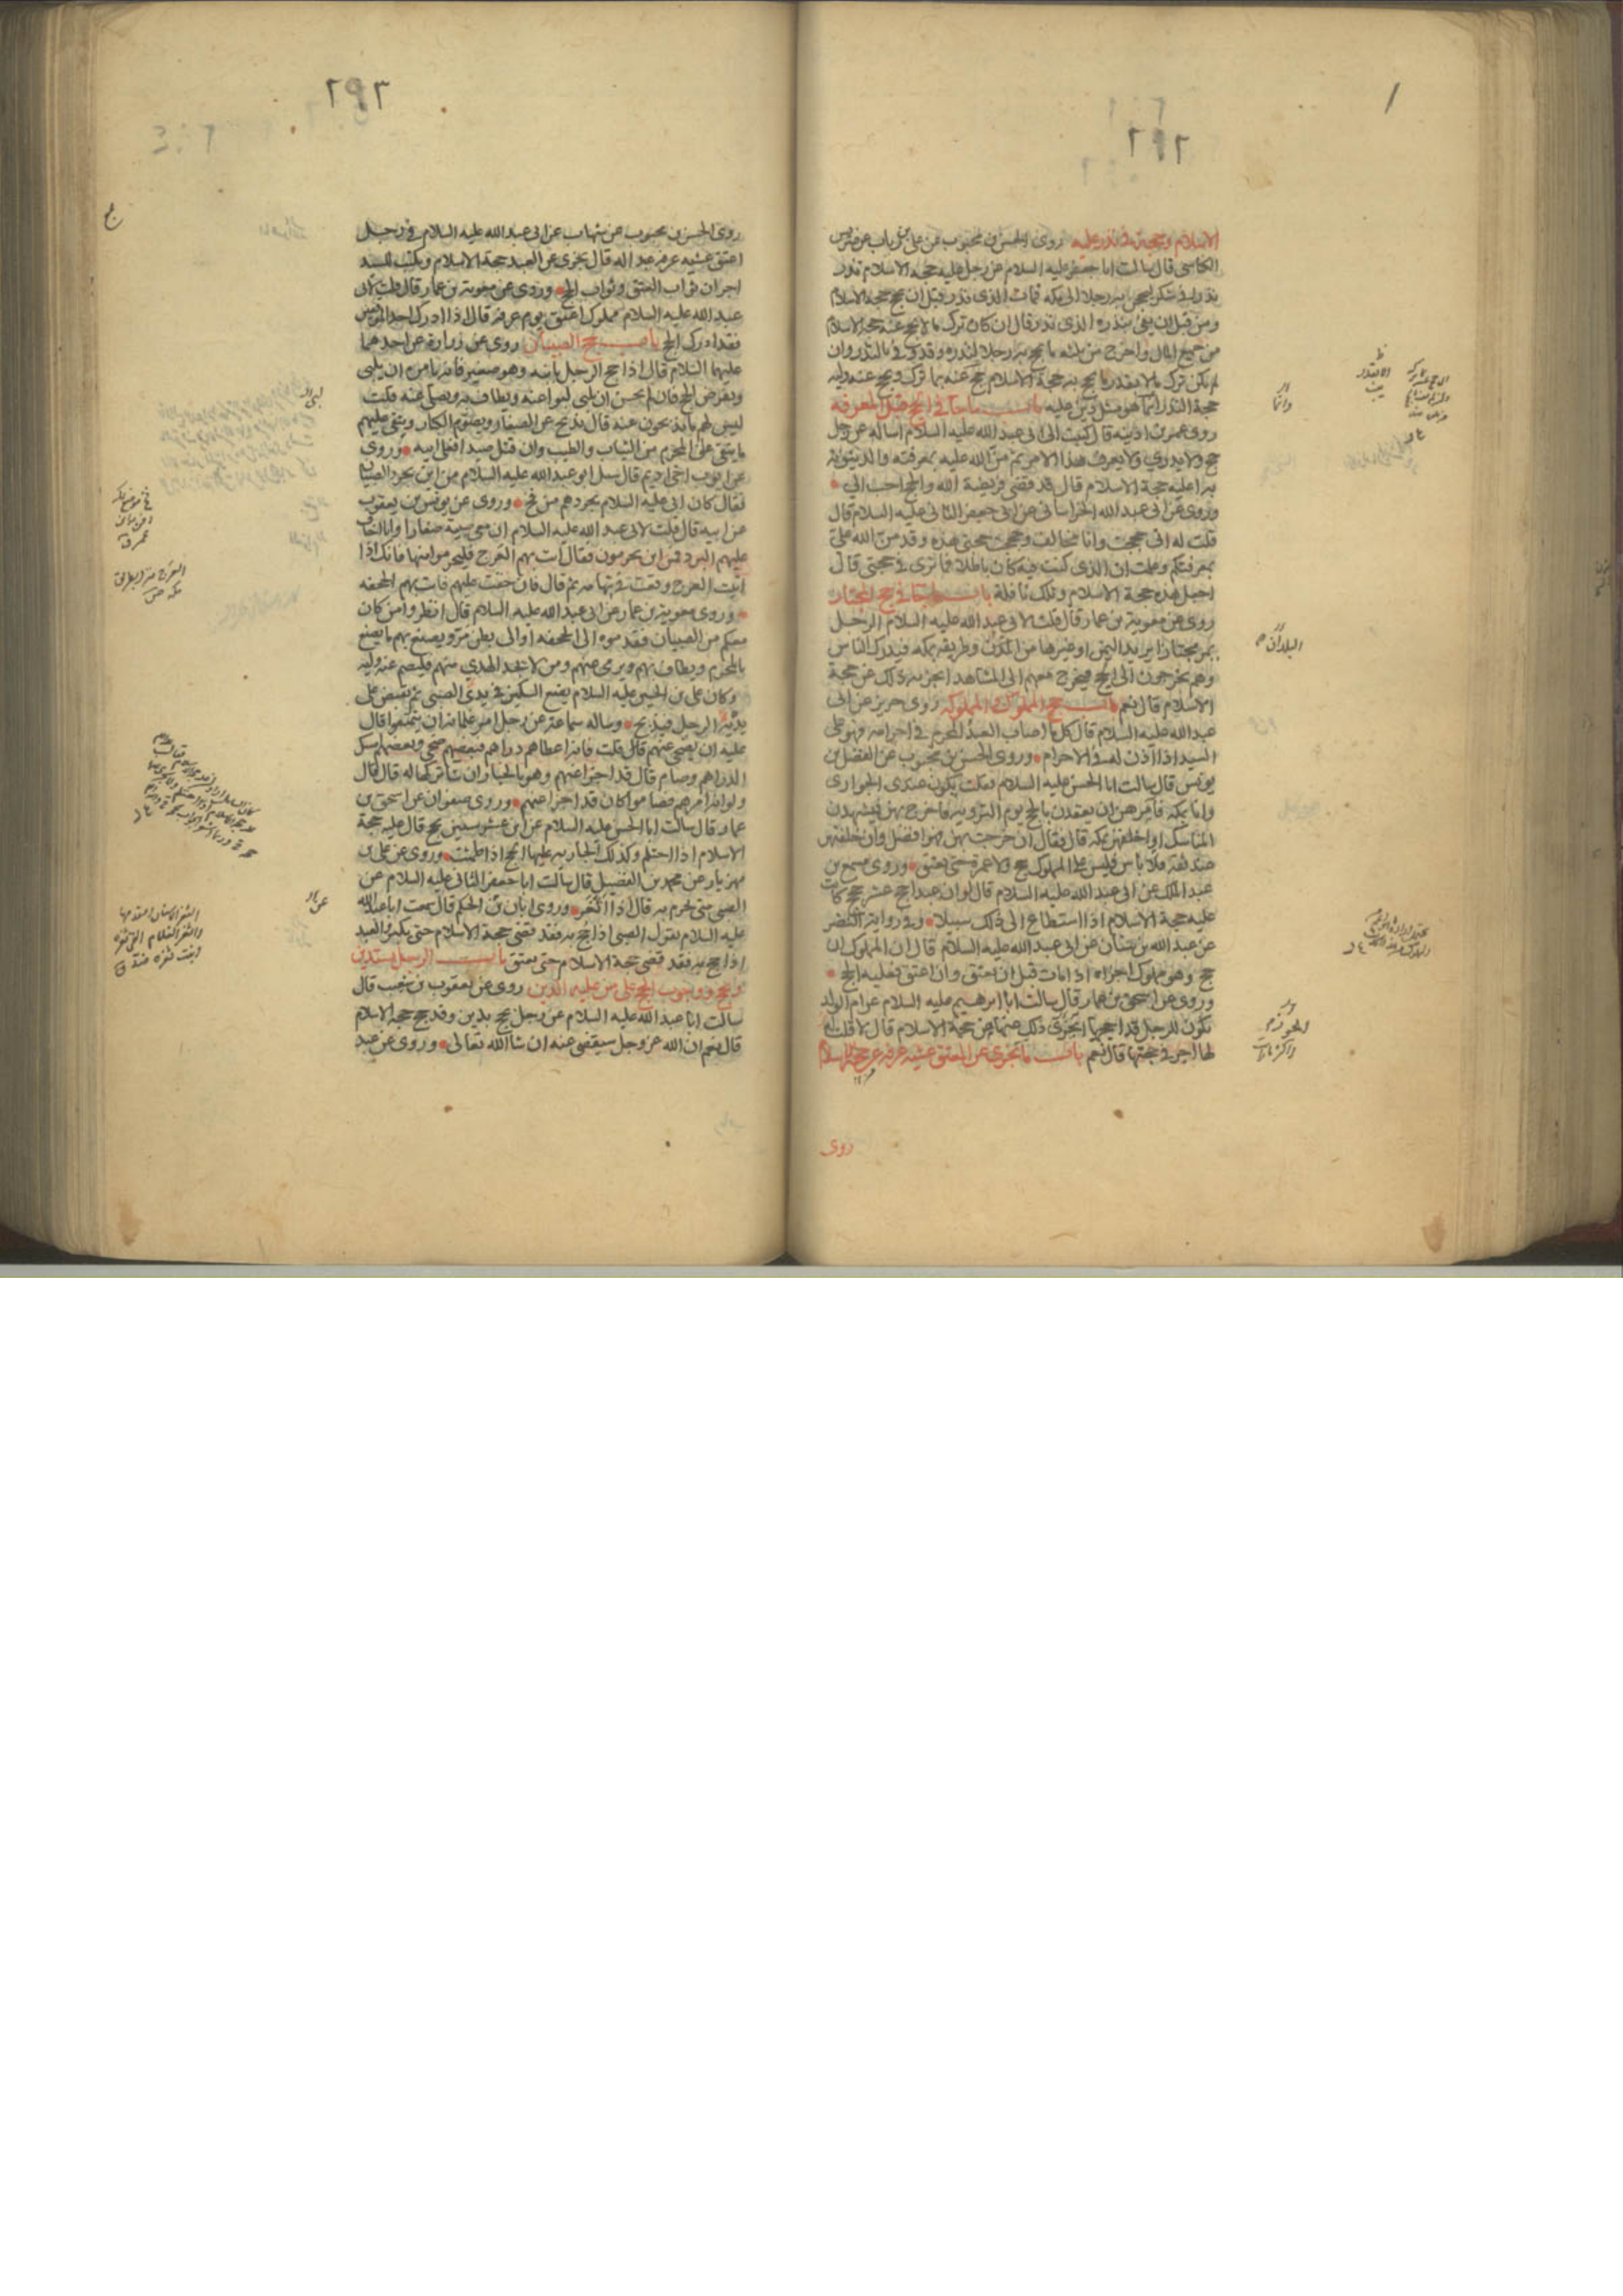 الاسلام وحجة في نذر عليه روى الحسن بن محبوب عن علي بن رئاب عن ضريس
الكناسي قال سالت ابا جعفر عليه السلام عن رجل عليه حجة الاسلام نذر
نذرا في شكر ليحجن به رجلا الى مكة فمات الذي نذر قبل ان يحج حجة الاسلام
ومن قبل ان يفي بنذره الذي نذر قال ان كان ترك مالا يحج عنه حجة الاسلام
من جميع المال واخرج من ثلثه ما يحج به رجلا لنذره وقد وفى بالنذر وان
لم يكن ترك مالا بقدر ما يحج به حجة الاسلام حج عنه بما ترك ويحج عنه وليه
حجة النذر انما هو مثل دين عليه باب ما جاء في الحج قبل المعرفة
روى عمر بن اذينه قال كتبت الى ابي عبد الله عليه السلام اساله عن رجل
حج ولا يدري ولا يعرف هذا الامر ثم من الله عليه بمعرفته والدينونة
به اعليه حجة الاسلام قال قد قضى فريضة الله والحج احب الي
وروى عن ابي عبد الله الخراساني عن ابي جعفر الثاني عليه السلام قال
قلت له اني حججت وانا مخالف وحججت حجتي هذه وقد من الله علي
بمعرفتكم وعلمت ان الذي كنت فيه كان باطلا فما ترى في حجتي قال
اجعل هذه حجة الاسلام وتلك نافلة باب ما جاء في حج المجتاز
روى عن معوية بن عمار قال قلت لابي عبد الله عليه السلام الرجل
يمر مجتازا يريد اليمن او غيرها من المدن وطريقه بمكه فيدرك الناس
وهم يخرجون الى الحج فيخرج معهم الى المشاهد ايجزيه ذلك عن حجة
الاسلام قال نعم باب حج المملوك والمملوكه روى حريز عن ابي
عبد الله عليه السلام قال كل ما اصاب العبد المحرم في احرامه فهو على
السيد اذا اذن له في الاحرام وروى الحسن بن محبوب عن الفضل بن
يونس قال سالت ابا الحسن عليه السلام فقلت يكون عندى الجوارى
وانا بمكه فامرهن ان يعقدن بالحج يوم الترويه فاخرج بهن فيشهدن
المناسك او اخلفهن بمكه قال فقال ان خرجت بهن فهو افضل وان خلفتهن
عند ثقة فلا باس فليس على المملوك حج ولا عمرة حتى يعتق وروى مسمع بن
عبد الملك عن ابي عبد الله عليه السلام قال لو ان عبدا حج عشر حجج كانت
عليه حجة الاسلام اذا استطاع الى ذلك سبيلا وفي رواية النضر
عن عبد الله بن سنان عن ابي عبد الله عليه السلام قال ان المملوك ان
حج وهو مملوك اجزاه اذا مات قبل ان يعتق وان اعتق فعليه الحج
وروى عن اسحق بن عمار قال سالت ابا ابرهيم عليه السلام عن ام الولد
تكون للرجل قد احجها ايجزي ذلك عنها من حجة الاسلام قال لا قلت
لها اجر في حجتها قال نعم باب ما يجزى عن المعتق عشية عرفه عن حجة الاسلام
روى
روى الحسن بن محبوب عن شهاب عن ابي عبد الله عليه السلام في رجل
اعتق عشيه عرفه عبدا له قال يجزى عن العبد حجة الاسلام ويكتب للسيد
اجران ثواب العتق وثواب الحج وروى عن معوية بن عمار قال قلت لابي
عبد الله عليه السلام مملوك اعتق يوم عرفه قال اذا ادرك احد الموقفين
فقد ادرك الحج باب حج الصبيان روى عن زرارة عن احدهما
عليهما السلام قال اذا حج الرجل بابنه وهو صغير فانه يامره ان يلبي
ويفرض الحج فان لم يحسن ان يلبي لبوا عنه ويطاف به ويصلى عنه قلت
ليس لهم ما يذبحون عنه قال يذبح عن الصغار ويصوم الكبار ويتقى عليهم
ما يتقى على المحرم من الثياب والطيب وان قتل صيدا فعلى ابيه وروى
عن ايوب اخي اديم قال سئل ابو عبد الله عليه السلام من اين يجرد الصبيان
فقال كان ابي عليه السلام يجردهم من فخ وروى عن يونس بن يعقوب
عن ابيه قال قلت لابي عبد الله عليه السلام ان معى صبية صغارا وانا اخاف
عليهم البرد فمن اين يحرمون فقال ائت بهم العرج فليحرموا منها فانك اذا
اتيت العرج وقعت في تهامه ثم قال فان خفت عليهم فات بهم الجحفه
وروى معوية بن عمار عن ابي عبد الله عليه السلام قال انظروا من كان
معكم من الصبيان فقدموه الى الجحفه او الى بطن مر ويصنع بهم ما يصنع
بالمحرم ويطاف بهم ويرمى عنهم ومن لا يجد الهدي منهم فليصم عنه وليه
وكان علي بن الحسين عليه السلام يضع السكين في يدي الصبي ثم يقبض على
يديه الرجل فيذبح وساله سماعة عن رجل امر غلمانه ان يتمتعوا قال
عليه ان يضحي عنهم قال قلت فانه اعطاهم دراهم فبعضهم ضحي وبعضهم امسك
الدراهم وصام قال قد اجزا عنهم وهو بالخيار ان شا تركها له قال قال
ولو انه امرهم فصاموا كان قد اجزا عنهم وروى صفوان عن اسحق بن
عمار قال سالت ابا الحسن عليه السلام عن ابن عشر سنين يحج قال عليه حجة
الاسلام اذا احتلم وكذلك الجاريه عليها الحج اذا طمثت وروى عن علي بن
مهزيار عن محمد بن الفضيل قال سالت ابا جعفر الثانى عليه السلام عن
الصبي متى يحرم به قال اذا اثغر وروى ابان بن الحكم قال سمعت ابا عبد الله
عليه السلام يقول الصبي اذا حج به فقد قضى حجة الاسلام حتى يكبر والعبد
اذا حج به فقد قضى حجة الاسلام حتى يعتق باب الرجل يستدين
ويحج ووجوب الحج على من عليه الدين روى عن يعقوب بن شعيب قال
سالت ابا عبد الله عليه السلام عن رجل يحج بدين وقد حج حجة الاسلام
قال نعم ان الله عز وجل سيقضي عنه ان شا الله تعالى وروى عن عبد